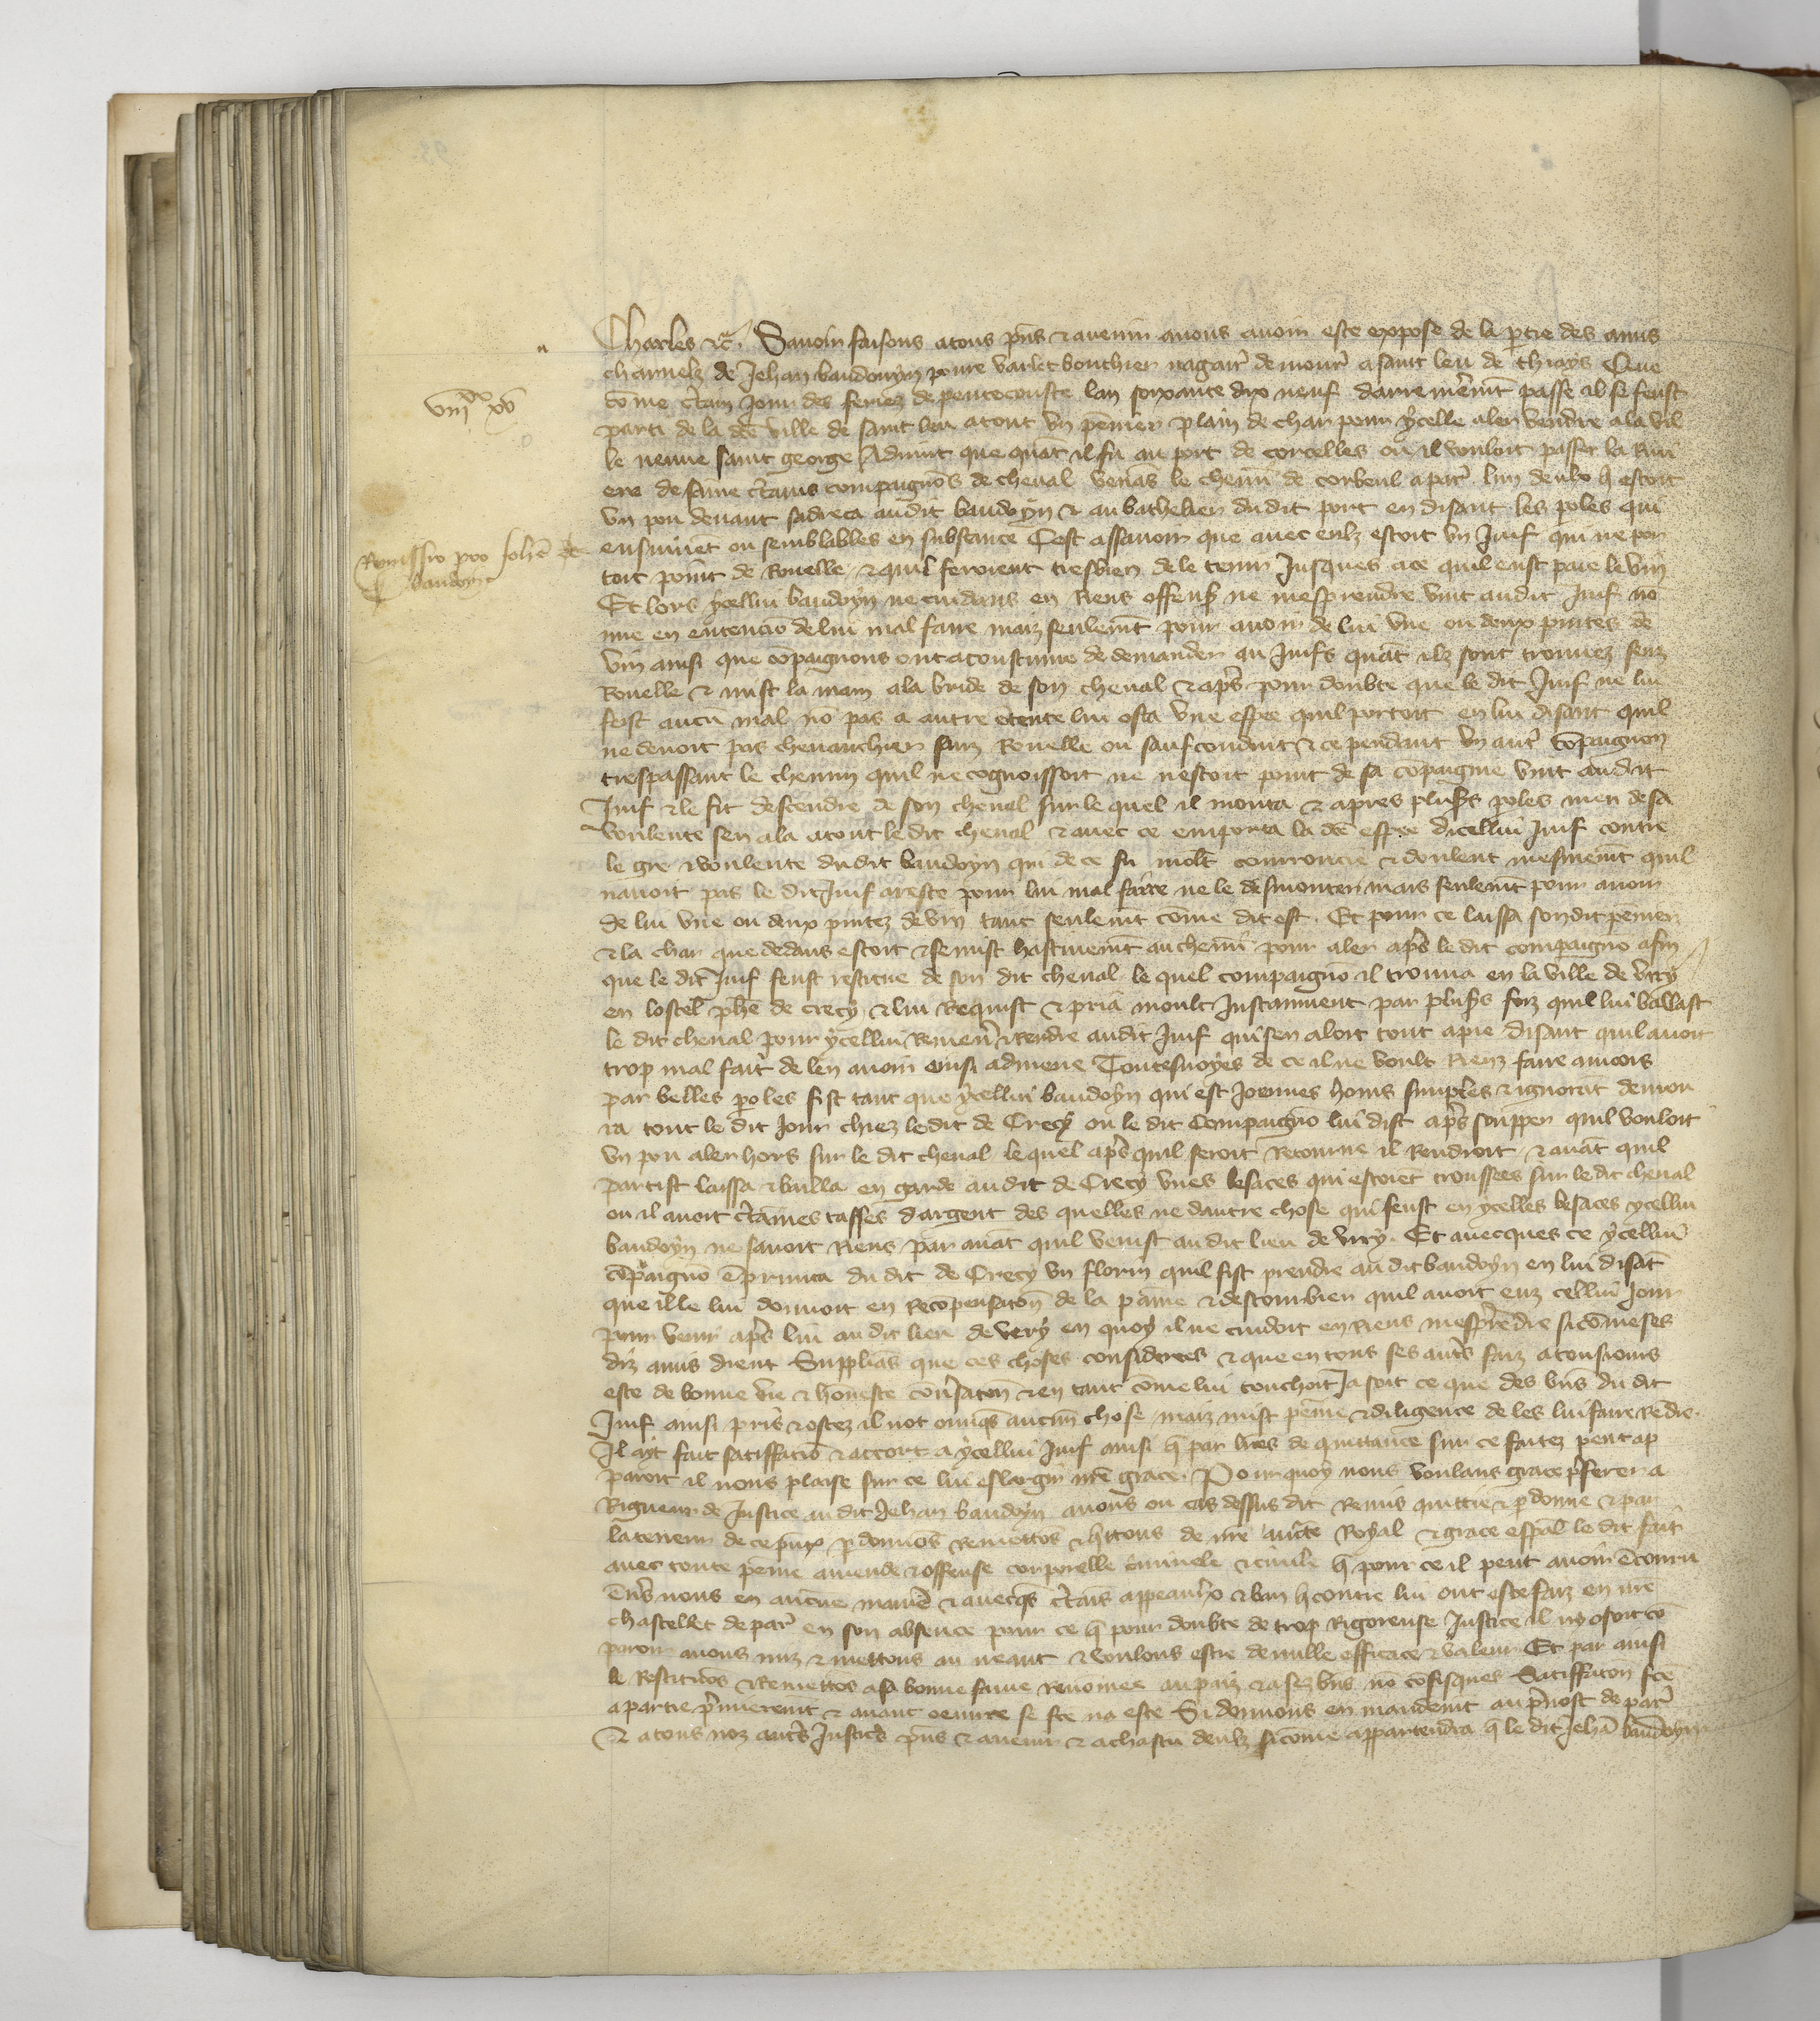 Charles etc. Savoir faisons a tous pñs & avenir a nous avoir este expose de la ptie des amis
charnelz de Jehan baudouyn povre varlet bouchier nagair demour a saint leu de thiays Que
cõme ctain Jour des feriez de penthecouste lan soixante dix neuf darrenẽrent passe il se feust
viijxx xv
parti de la dce ville de saint leu atout vn pennier plain de char pour ycelle aler vendre a la vil
le neuve saint george Advint que quãt il fu au port de corcelles ou il vouloit passer la Rivi
ere de saine ctains compaignõs de cheval venãs le chemĩ de corbeul a par lun deulx q estoit
vn pou devant sadreca audit baudoyn & au bathelier dudit port en disant les poles qui
Remissio pro Johẽ de
baudoyn
ensuivẽt ou semblables en substance Cest assavoir que avec eulz estoit vn Juif qui ne por
toit point de Rouelle & quil feroient tresbien de le tenir Jusques a ce quil eust paie le vin
Et lors ycellui baudoyn ne cuidans en Riens offens ne mesprendre vint audit Juif no
mie en entencio de lui mal faire maiz seulemt pour avoir de lui vne ou deux pintes de
vin ainsi que cõpaignons ont acoustume de demander au Juifs quãt ilz sont trouvez senz
Rouelle & mist la main a la bride de son cheval & aps pour doubte que le dit Juif ne lui
feist aucũ mal nõ pas a autre ẽtente lui osta vne espee quil portoit en lui disant quil
ne devoit pas chevauchier sanz Rouelle ou saufconduit & ce pendant vn aut cõpaignon
trespassant le chemin quil ne cognoissoit ne nestoit point de sa cõpaignie vint audit
Juif & le fit descendre de son cheval sur le quel il monta & apres plusrs poles meu de sa
voulente sen ala atout le dit cheval & avec ce emporta la dce espee dicellui Juif contre
le gre & voulente dudit baudoyn qui de ce fu molt courroucie & doulent mesmemt quil
navoit pas le dit Juif areste pour lui mal faire ne le desmonter mais seulemt pour avoir
de lui vne ou deux pintez de vin tant seulemt cõme dit est. Et pour ce laissa sondit penier
& la char que dedans estoit & se mist hastivemt au chemĩ pour aler aps le dit compaigno afin
que le dit Juif feust restitue de son dit cheval le quel compaigno il trouva en la ville de vitry
en lostel phe de crecy & lui Requist & pria moult Instanment par plusrs foiz quil lui baillast
le dit cheval pour ycellui Ramen & Rendre audit Juif qui sen aloit tout a pie disant quil avoit
trop mal fait de len avoir einsi admene Toutesvoyes de ce il ne voult Rienz faire aincois
par belles poles fist tant que ycellui baudoyn qui est Joennes homs simples & ignorãt demou
ra tout le dit Jour chiez ledit de Crecy ou le dit Compaigno lui dist aps soupper quil vouloit
vn pou aler hors sur le dit cheval lequel aps quil seroit Retourne il Rendroit & avãt quil
partist laissa & bailla en garde audit de Crecy vnes besaces qui estoiẽt troussees sur ledit cheval
ou il avoit ctaines tasses dargent des quelles ne dautre chose qui feust en ycelles besaces ycellui
baudoyn ne savoit Riens par avãt quil venist audit lieu de vitry. Et avecques ce ycellui
cõpaignõ ẽprunta du dit de Crecy vn florin quil fist prendre audit baudoyn en lui disãt
que il le lui donnoit en Recõpensatoñ de la paine & destourbier quil avoit euz cellui Jour
pour venir aps lui au dit lieu de vitry en quoy il ne cuidoit en Riens mesprẽdre si cõme ses
diz amis dient Supplians que ces choses considerees & que en tous ses auts faiz a tousjours
este de bonne vie & hõneste cõũsatoñ & en tant cõme lui touchoit Ja soit ce que des biens du dit
Juif ainsi pris & ostez il not onqs aucune chose maiz mist peine & diligence de les lui faire Rẽdre.
Il ait fait satiffatiõ & accort a ycellui Juif ainsi q par lres de quittance sur ce faitez peut ap
paroir il nous plaise sur ce lui eslargir nre grace. Pour quoy nous voulans grace pferer a
Rigueur de Justice audit Jehan baudoyn avons ou cas dessus dit Remis quittie & pdonne & par
la teneur de ce pñtx pdonnõs Remettõs & qttons de nre autte Royal & grace espal le dit fait
avec toute peine amende & offense corporelle criminele & civile q pour ce il peut avoir ẽcouru
ẽvs nous en aucune maniẽ & avecqs ctais appeaulx & ban q contre lui ont este faiz en nre
chastellet de par en son absence pour ce q pour doubte de trop Rigoreuse Justice il ny osoit cõ
paroir avons mis & mettons au neant & voulons estre de nulle efficace & valeur Et par ainsi
le Restituõs & Remettõs a sa bonne fame Renõmee au paiz & a sez bñs nõ cõfisques Satiffaton fce
a partie pmierement & avant oeuvre se fce na este Si donnons en mandemt au pvost de par
& a tous noz auts Justics pñs & avenir & a chascũ deulz si cõme appartendra q le dit Jehã baudoyn